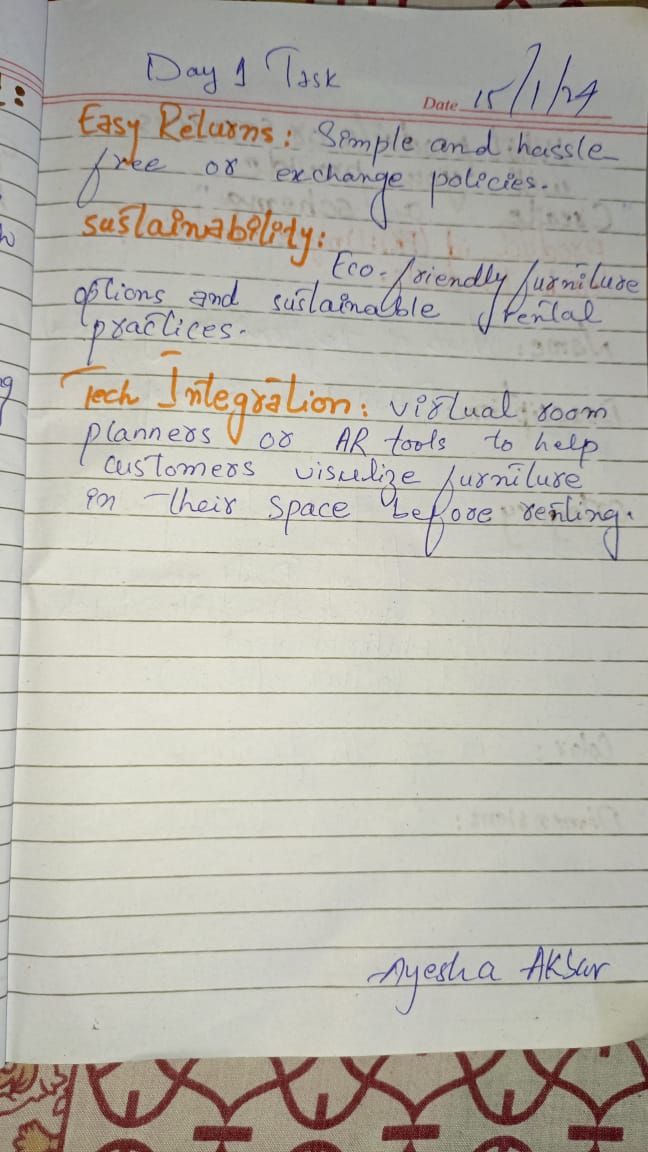 Day 1 Task
Date 15/1/24
Easy Returns: Simple and hassle
free or exchange policies.
Sustainability:
Eco-friendly furniture
options and sustainable rental
practices.
Tech Integration: virtual room
planners or AR tools to help
customers visulize furniture
in their space before renting.
Ayesha Akbar